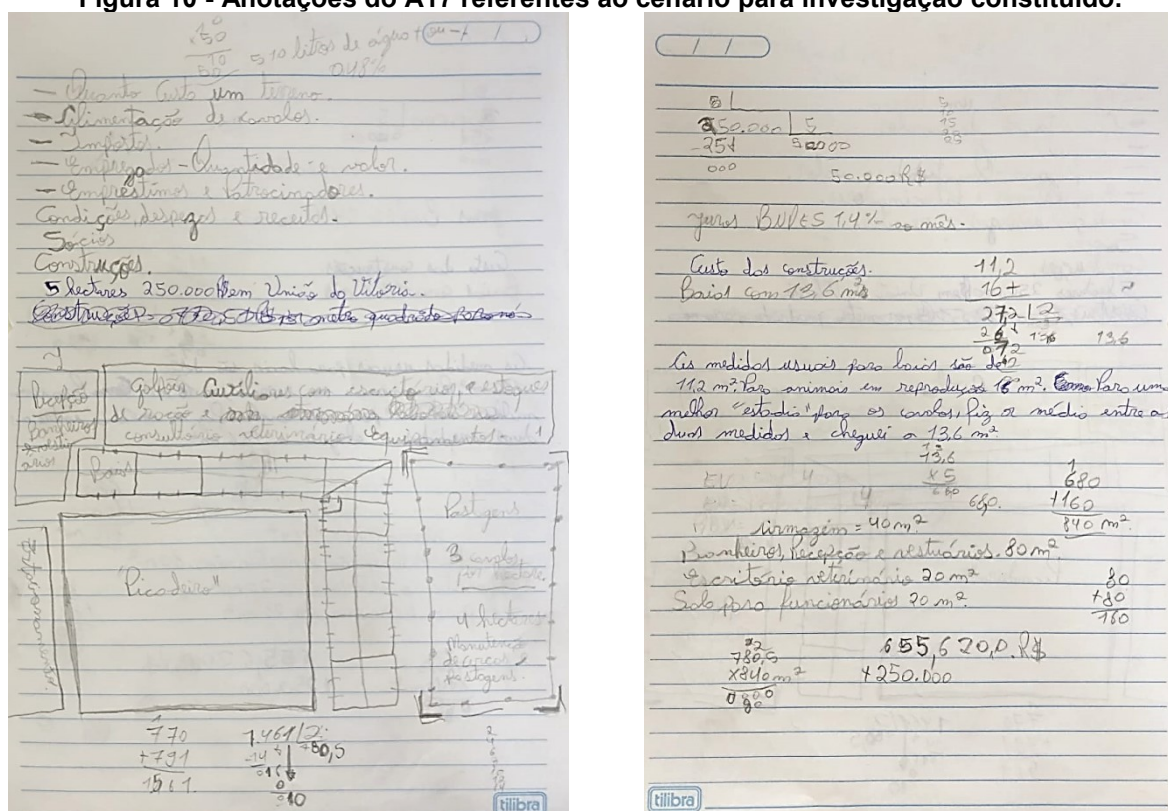 Figura 10 - Anotações do A17 referentes ao cenário para investigação constituído.
50
10
50
510 litros de água
0,48%
- Quanto Custa um terreno.
- Alimentação de cavalos.
- Impostos.
- Empregados - Quantidade e valor.
- Empréstimos e Patrocinadores.
Condições, despezas e receitas.
Sócios
Construções.
5 hectares 250.000 R$ em União da Vitória.
Recepção
Banheiros
Galpões Auxiliares com escritórios, estoques
de ração e
consultório veterinário equipamentos
Baias
"Picadeiro"
Pastagens
3 cavalos
por hectare.
4 hectares
Manutenção
de cercas e
pastagens.
770
+791
1561
1.461 | 2
-14
780,5
tilibra
/ /
250.000 | 5
-25
50000
000
50.000 R$
5
10
15
juros BNDES 1,4% ao mês.
Custo das construções.
Baias com 13,6 m²
11,2
16+
27,2 | 2
13,6
As medidas usuais para baias são de
11,2 m² Para animais em reprodução 16 m². Para uma
melhor "estadia" para os cavalos, fiz a média entre as
duas medidas e cheguei a 13,6 m²
13,6
x5
680
680.
1
680
+160
840 m²
Armazém = 40 m²
Banheiros, Recepção e vestuários. 80 m²
Escritório vetirinário 20 m²
Sala para funcionários 20 m².
80
+80
160
780,5
x840 m²
655,620,0. R$
+250.000
tilibra